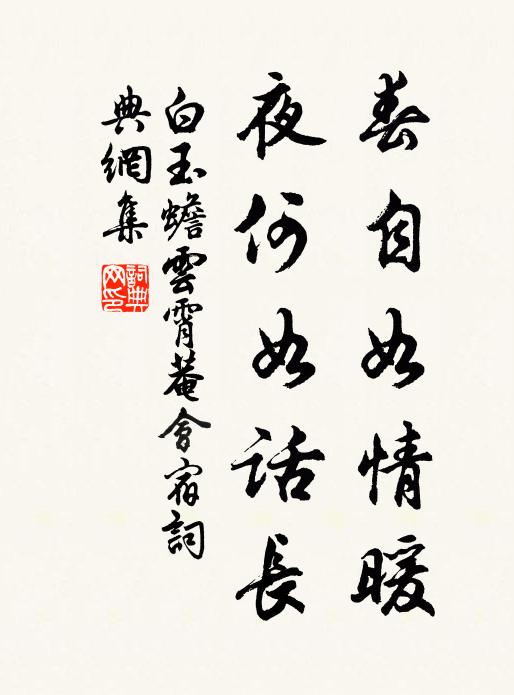 春自如情暖
夜何如話長
白玉蟾雲霄菴會宿詞
典網集
詞典网印